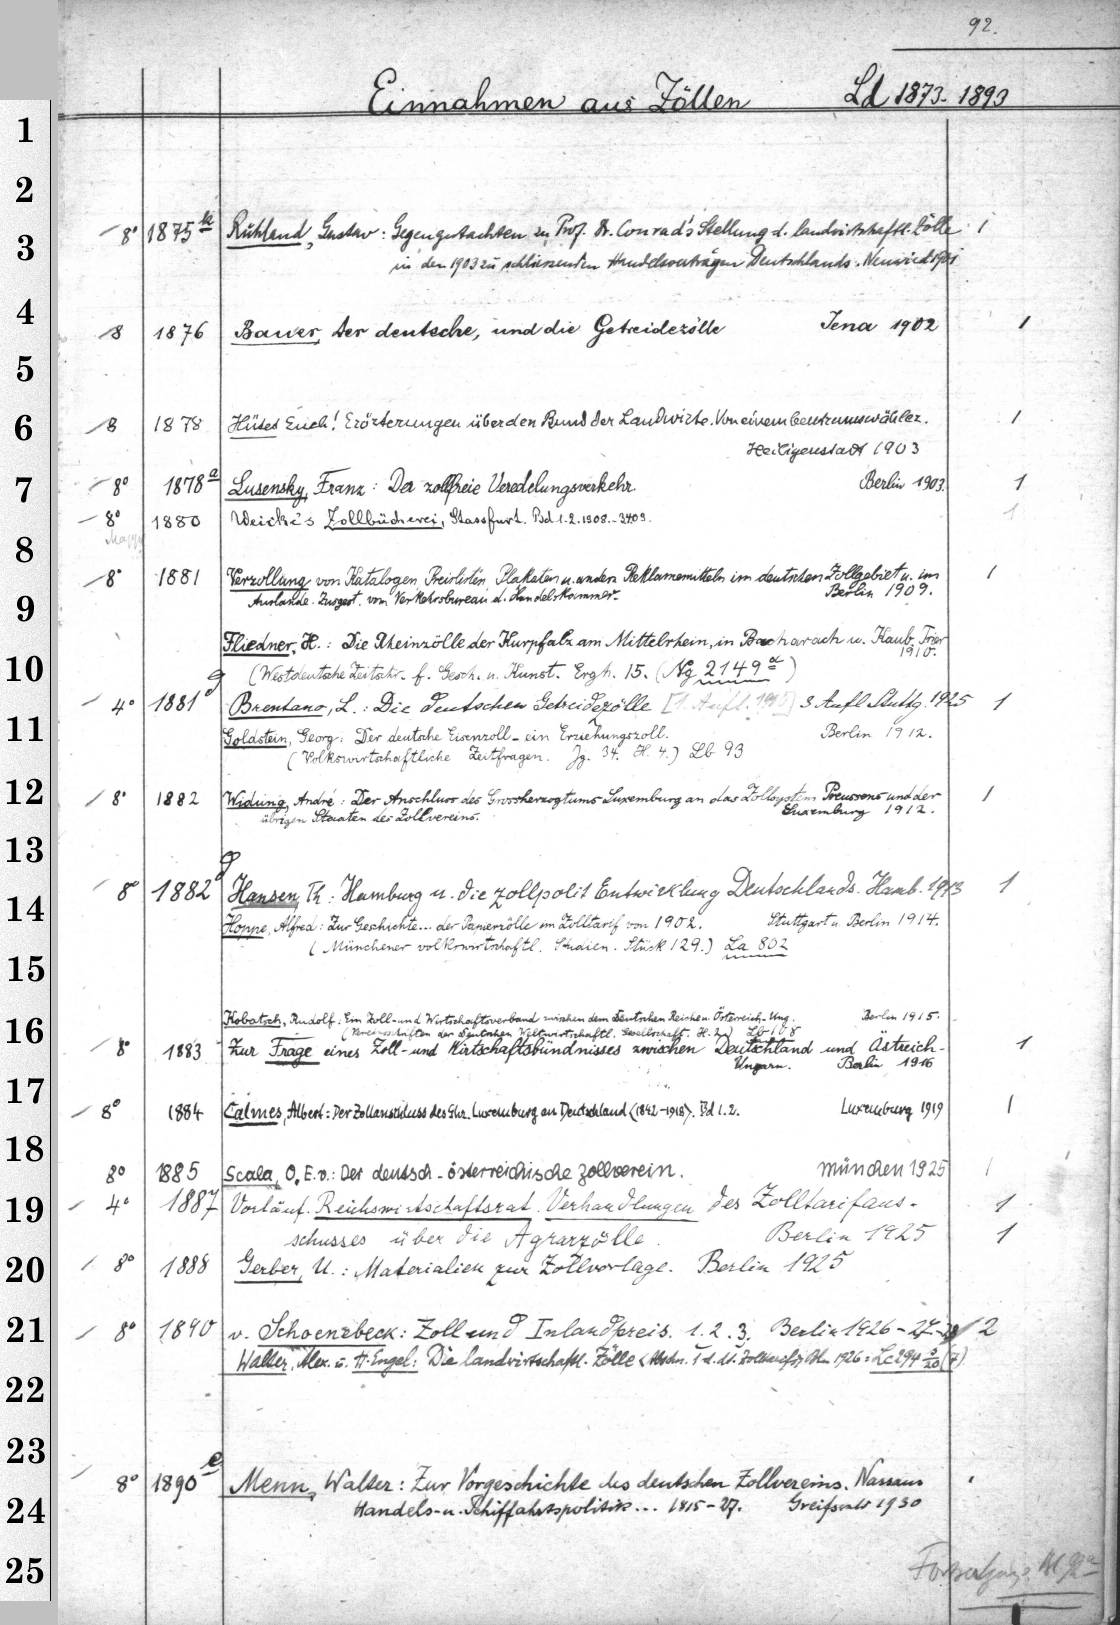 92.
Einnahmen aus Zöllen Ld 1873-1893
1
2
8° 1875 k Ruhland, Gustav: Gegengutachten zu Prof. Dr. Conrad's Stellung d. landwirtschaftl. Zölle 1
3
in den 1903 zu schliessenden Handelsverträgen Deutschlands. Neuwied 1901
4
8 1876 Bauer, Der deutsche, und die Getreidezölle Jena 1902 1
5
6
8 1878 Hütet Euch! Erörterungen über den Bund der Landwirte. Von einem Centrumswähler. 1
Heiligenstadt 1903
7
8° 1878 a Lusensky, Franz: Der zollfreie Veredelungsverkehr. Berlin 1903. 1
8° 1880 Weicke's Zollbücherei, Stassfurt. Bd 1.2. 1908.-3409. 1
Mappe
8
8° 1881 Verzollung von Katalogen Preislisten Plakaten u. andern Reklamemitteln im deutschen Zollgebiet u. im 1
Auslande. Zusgest. vom Verkehrsbureau d. Handelskammer. Berlin 1909.
9
Fliedner, H.: Die Rheinzölle der Kurpfalz am Mittelrhein, in Bacharach u. Kaub. Trier
1910.
10
(Westdeutsche Zeitschr. f. Gesch. u. Kunst. Ergh. 15. (Ng 2149 a)
4° 1881 g Brentano, L.: Die deutschen Getreidezölle [1. Aufl. 1910] 3. Aufl Stuttg. 1925 1
11
Goldstein, Georg: Der deutsche Eisenzoll - ein Erziehungszoll. Berlin 1912.
(Volkswirtschaftliche Zeitfragen. Jg. 34. H. 4.) Lb 93
12
8° 1882 Widung, André: Der Anschluss des Grossherzogtums Luxemburg an das Zollsystem Preussens und der 1
übrigen Staaten des Zollvereins. Luxemburg 1912.
13
8° 1882 g Hansen, Th: Hamburg u. die zollpolit Entwicklung Deutschlands. Hamb. 1913 1
14
Hoppe, Alfred: Zur Geschichte... der Papierzölle im Zolltarif von 1902. Stuttgart u. Berlin 1914.
(Münchener volkswirtschaftl. Studien. Stück 129.) La 802
15
Kobatsch, Rudolf: Ein Zoll- und Wirtschaftsverband zwischen dem Deutschen Reiche u. Österreich-Ung. Berlin 1915.
16
(Vereinsschriften der Deutschen Weltwirtschaftl. Gesellschaft. H. 2.)
8° 1883 Zur Frage eines Zoll- und Wirtschaftsbündnisses zwischen Deutschland und Östreich- 1
Ungarn. Berlin 1916
17
8° 1884 Calmes, Albert: Der Zollanschluss des Ghz. Luxemburg an Deutschland (1842-1918). Bd 1.2. Luxemburg 1919 1
18
8° 1885 Scala, O. E. v.: Der deutsch-österreichische Zollverein. München 1925 1
19
4° 1887 Vorläuf. Reichswirtschaftsrat. Verhandlungen des Zolltarifaus- 1
schusses über die Agrarzölle. Berlin 1925 1
20
8° 1888 Gerber, U.: Materialien zur Zollvorlage. Berlin 1925
21
8° 1890 v. Schoenebeck: Zoll und Inlandpreis. 1. 2. 3. Berlin 1926-27-28 2
Walter, Alex. u. H. Engel: Die landwirtschaftl. Zölle 1926
22
23
8° 1890 e Menn, Walter: Zur Vorgeschichte des deutschen Zollvereins. Nassaus
24
Handels- u. Schiffahrtspolitik... 1815-27. Greifswald 1930
25
Fortsetzung Bl 92a